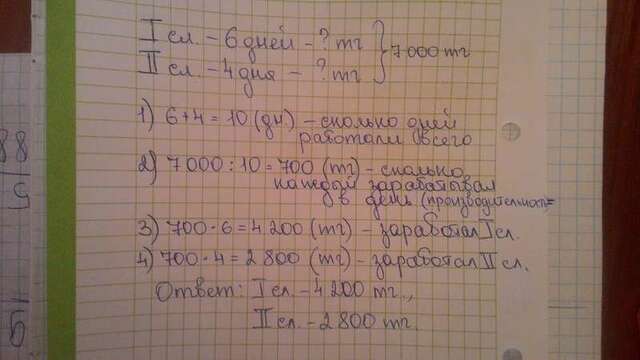 I сл. – 6 дней – ? тг } 7000 тг
II сл. – 4 дня – ? тг
1) 6+4=10 (дн) – сколько дней
работали всего
2) 7000:10=700 (тг) – сколько
каждый зарабатывал
в день (производительность=
3) 700·6=4200 (тг) – заработал I сл.
4) 700·4=2800 (тг) – заработал II сл.
Ответ: I сл. – 4200 тг.,
II сл. – 2800 тг.
88
5